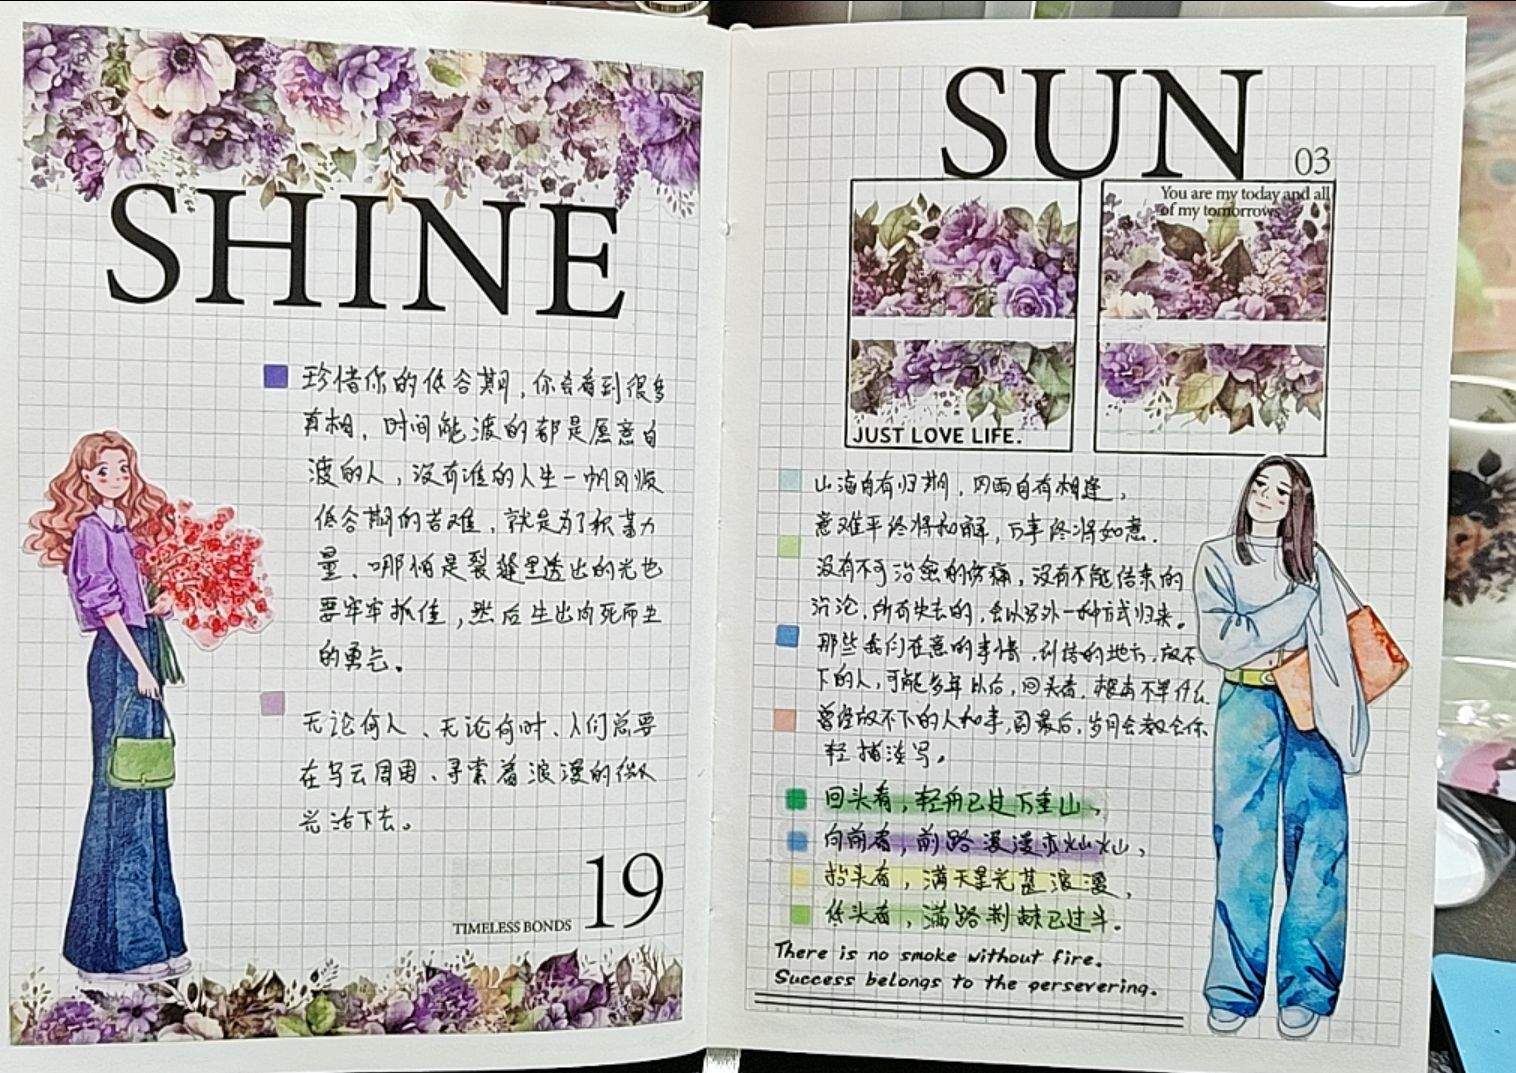 SHINE
珍惜你的低谷期，你会看到很多
真相，时间能渡的都是愿意自
渡的人，没有谁的人生一帆风顺
低谷期的苦难，就是为了积蓄力
量、哪怕是裂缝里透出的光也
要牢牢抓住，然后生出向死而生
的勇气。
无论何人、无论何时、人们总要
在乌云周围、寻索着浪漫的微
光活下去。
TIMELESS BONDS 19
SUN
03
You are my today and all
of my tomorrows
JUST LOVE LIFE.
山海自有归期，风雨自有相逢，
意难平终将和解，万事终将如意.
没有不可治愈的伤痛，没有不能结束的
沉沦，所有失去的，会以另外一种方式归来。
那些我们在意的事情，纠结的地方，放不
下的人，可能多年以后，回头看，根本不算什么
曾经放不下的人和事，到最后，岁月会教会你
轻描淡写。
回头看，轻舟已过万重山，
向前看，前路漫漫亦灿灿，
抬头看，满天星光甚浪漫，
低头看，满路荆棘已过半.
There is no smoke without fire.
Success belongs to the persevering.